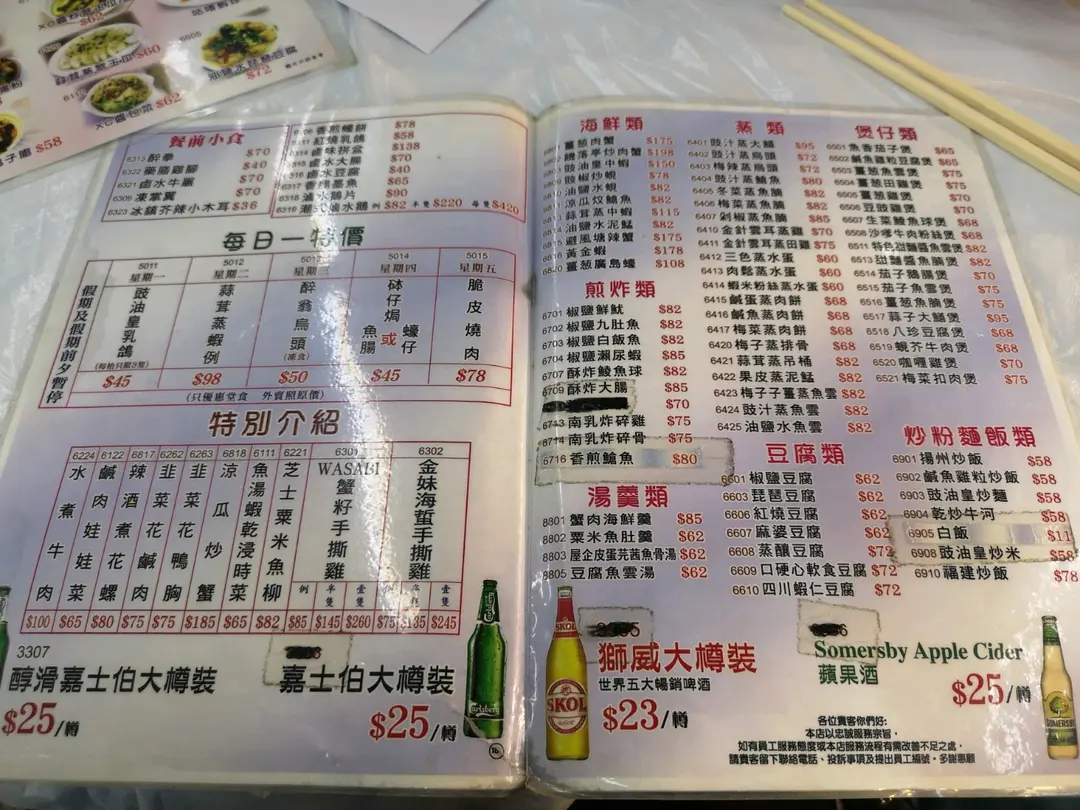 $62
$60
$72
XO醬包菜 $62
$58
餐前小食
6313 醉拳 $70
6322 藥膳雞腳 $40
6321 鹵水牛𦟌 $70
6309 凍掌翼 $70
6323 冰鎮芥辣小木耳 $36
香煎蠔餅 $78
紅燒乳鴿 $58
鹵味拼盆 $138
鹵水大腸 $70
鹵水豆腐 $40
鹵水墨魚 $65
鹵水鵝片 $90
6319 潮式鹵水鵝 例 $82 半隻 $220 每隻 $420
每日一特價
假期及假期前夕暫停
5011 星期一 豉油皇乳鴿 (每枱只限3隻) $45
5012 星期二 蒜茸蒸蝦 例 $98
5013 星期三 醉翁烏頭 (凍食) $50
5014 星期四 砵仔焗魚腸或蠔仔 $45
5015 星期五 脆皮燒肉 $78
(只優惠堂食 外賣照原價)
特別介紹
6224 水煮牛肉 $100
6122 鹹肉娃娃菜 $65
6818 辣酒煮花螺 $80
6262 韭菜花鹹肉 $75
6263 韭菜花鴨胸 $75
6817 涼瓜炒蟹 $185
6111 魚湯蝦乾浸時菜 $65
6221 芝士粟米魚柳 $82
6301 WASABI蟹籽手撕雞 例 $85 半隻 $145 壹隻 $260
6302 金妹海蜇手撕雞 例 $75 半隻 $135 壹隻 $245
3307
醇滑嘉士伯大樽裝
$25/樽
嘉士伯大樽裝
$25/樽
Carlsberg
16
海鮮類
薑葱肉蟹 $175
避落亭炒肉蟹 $198
豉油皇中蝦 $150
豉椒炒蜆 $78
油鹽水蜆 $82
涼瓜炆鱠魚 $82
蒜茸蒸中蝦 $115
油鹽水泥鯭 $82
避風塘辣蟹 $175
黃金蝦 $178
6820 薑葱廣島蠔 $108
煎炸類
6701 椒鹽鮮魷 $82
6702 椒鹽九肚魚 $82
6703 椒鹽白飯魚 $82
6704 椒鹽瀨尿蝦 $85
6707 酥炸鯪魚球 $82
6709 酥炸大腸 $85
$70
6713 南乳炸碎雞 $75
6714 南乳炸碎骨 $75
6716 香煎鱠魚 $80
湯羹類
8801 蟹肉海鮮羹 $85
8802 粟米魚肚羹 $62
8803 屋企皮蛋芫茜魚骨湯 $62
8805 豆腐魚雲湯 $62
蒸類
6401 豉汁蒸大鱔 $95
6402 豉汁蒸烏頭 $72
6403 梅辣蒸烏頭 $72
6404 豉汁蒸鱠魚 $80
6405 冬菜蒸魚腩 $82
6406 蒜茸蒸魚腩 $82
6407 剁椒蒸魚腩 $85
6410 金針雲耳蒸雞 $70
6411 金針雲耳蒸田雞 $75
6412 三色蒸水蛋 $60
6413 肉鬆蒸水蛋 $60
6414 蝦米粉絲蒸水蛋 $60
6415 鹹蛋蒸肉餅 $68
6416 鹹魚蒸肉餅 $68
6417 梅菜蒸肉餅 $68
6420 梅子蒸排骨 $68
6421 蒜茸蒸吊桶 $82
6422 果皮蒸泥鯭 $82
6423 梅子子薑蒸魚雲 $82
6424 豉汁蒸魚雲 $82
6425 油鹽水魚雲 $82
豆腐類
6601 椒鹽豆腐 $62
6603 琵琶豆腐 $62
6606 紅燒豆腐 $62
6607 麻婆豆腐 $62
6608 蒸釀豆腐 $72
6609 口硬心軟食豆腐 $72
6610 四川蝦仁豆腐 $72
煲仔類
6501 魚香茄子煲 $65
6502 鹹魚雞粒豆腐煲 $65
6503 薑葱魚雲煲 $75
6504 薑葱田雞煲 $75
6505 薑葱雞煲 $70
6506 豆豉雞煲 $70
6507 生菜鯪魚球煲 $68
6508 沙嗲牛肉粉絲煲 $68
6511 特色甜麵醬魚雲煲 $82
6513 甜麵醬魚腩煲 $82
6514 茄子鵝腸煲 $70
6515 茄子魚雲煲 $75
6516 薑葱魚腩煲 $75
6517 蒜子大鱔煲 $95
6518 八珍豆腐煲 $68
6519 蜆芥牛肉煲 $68
6520 咖喱雞煲 $70
6521 梅菜扣肉煲 $75
炒粉麵飯類
6901 揚州炒飯 $58
6902 鹹魚雞粒炒飯 $58
6903 豉油皇炒麵 $58
6904 乾炒牛河 $58
6905 白飯 $11
6908 豉油皇炒米 $58
6910 福建炒飯 $78
SKOL
獅威大樽裝
世界五大暢銷啤酒
$23/樽
Somersby Apple Cider
蘋果酒
$25/樽
SOMERSBY
各位貴客你們好:
本店以忠誠服務宗旨,
如有員工服務態度或本店服務流程有需改善不足之處,
請貴客留下聯絡電話、投訴事項及提出員工編號。多謝惠顧